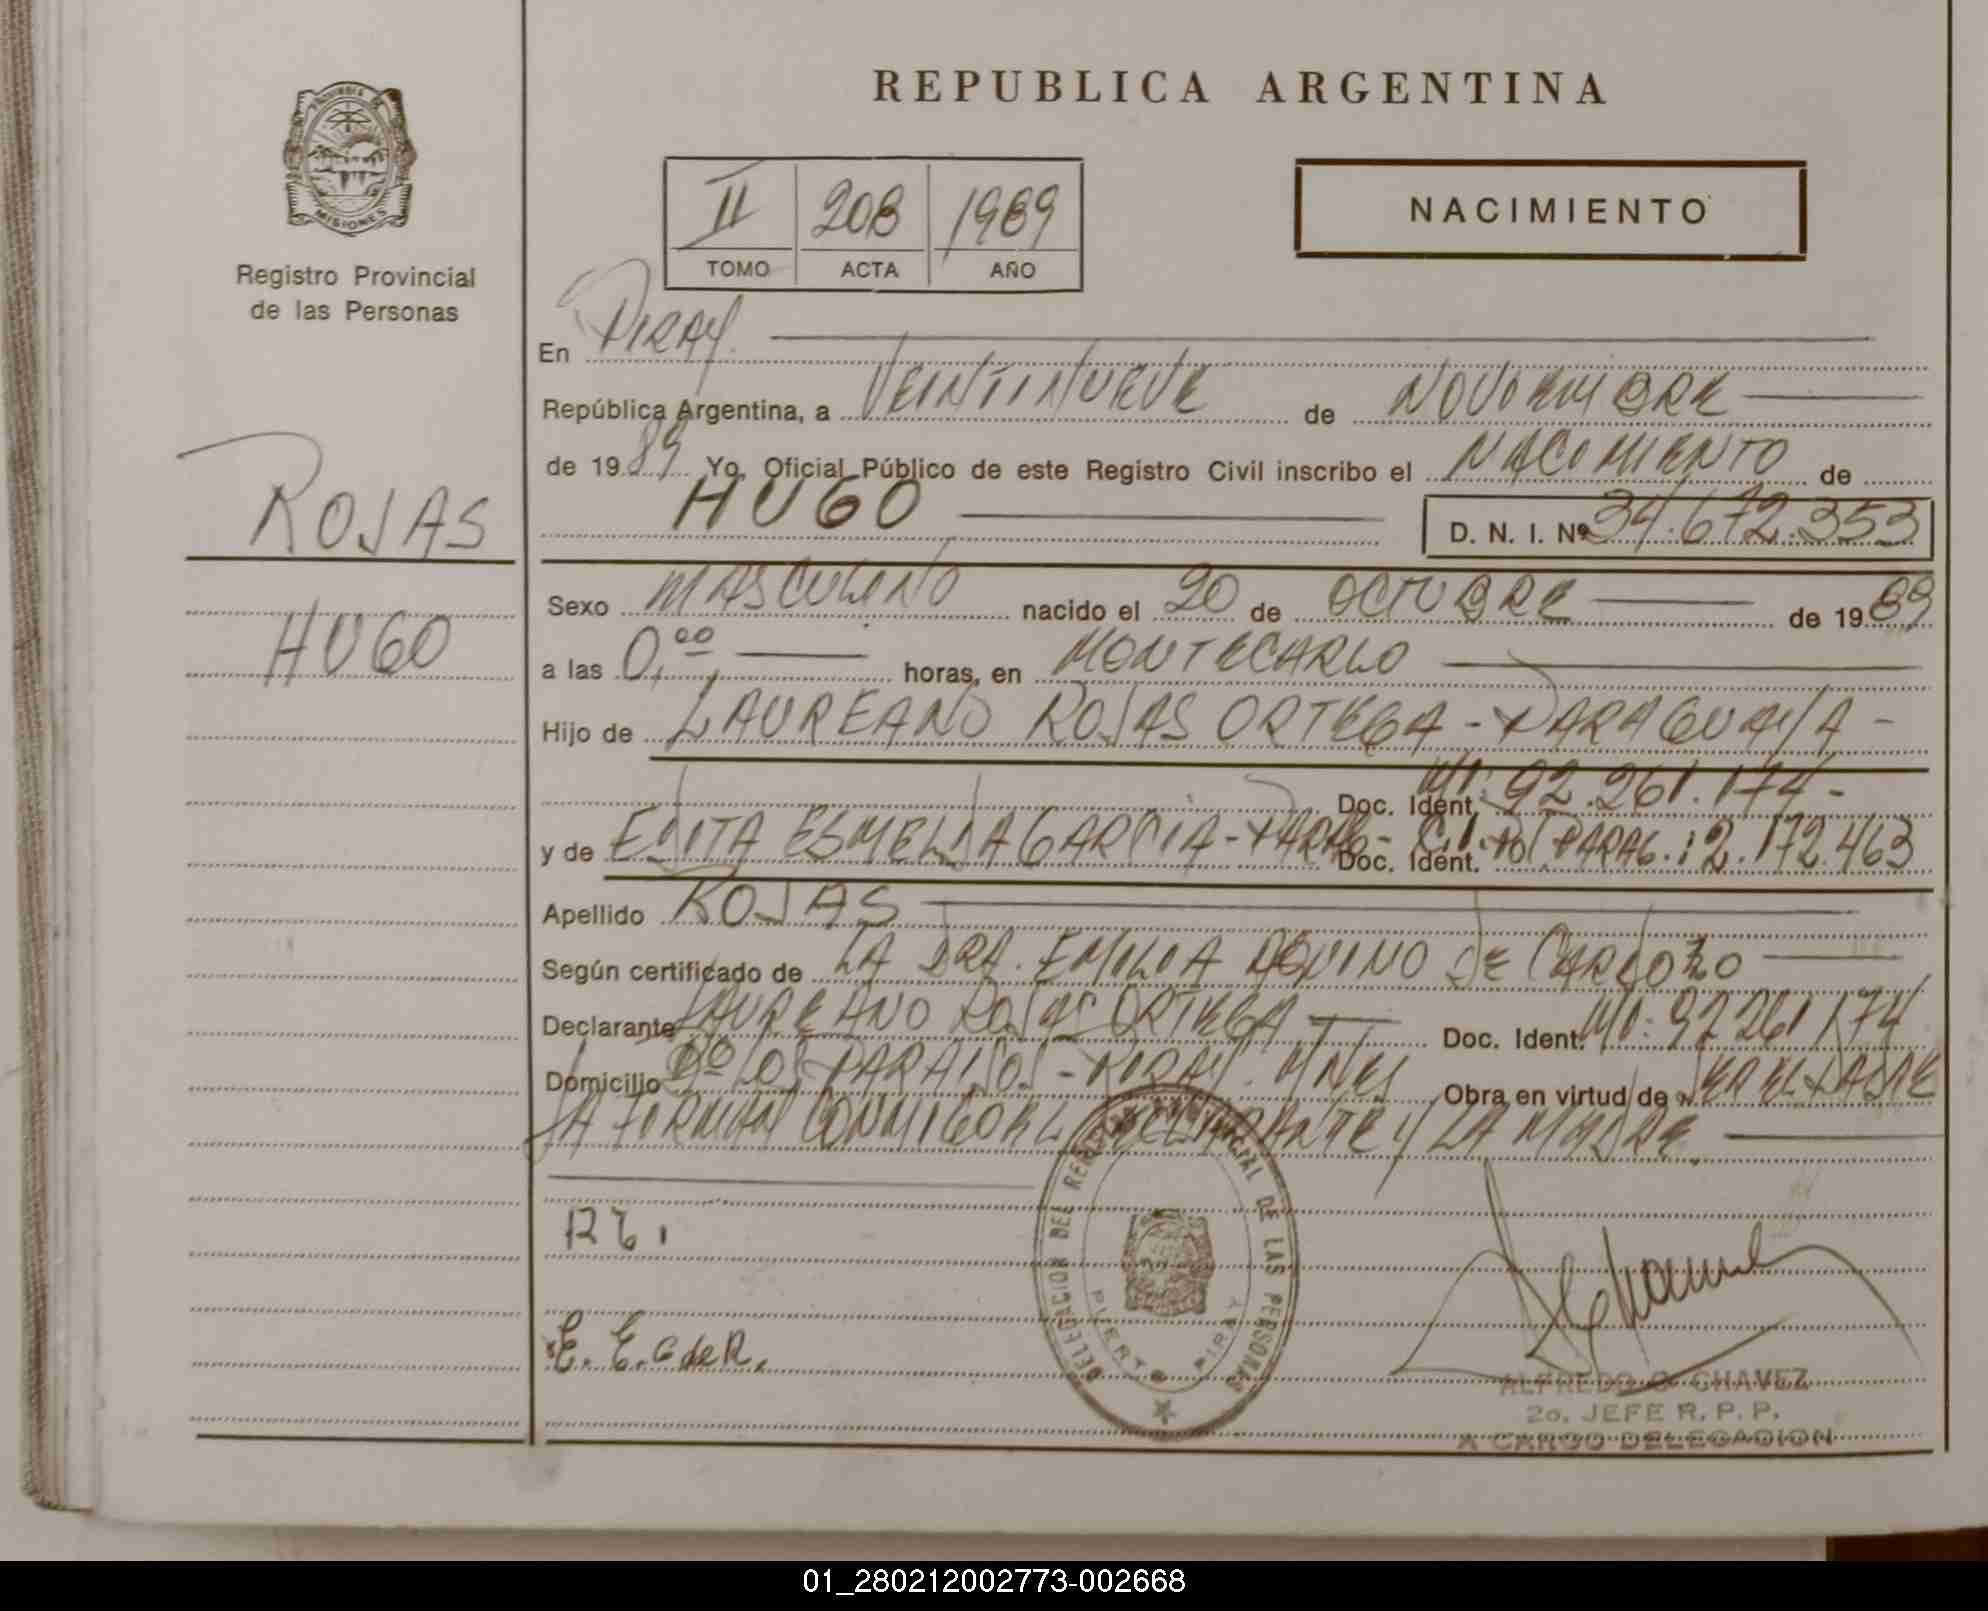 REPUBLICA ARGENTINA
PROVINCIA DE
MISIONES
Registro Provincial
de las Personas
II 208 1989
TOMO ACTA AÑO
NACIMIENTO
En PIRAY
República Argentina, a VEINTINUEVE de NOVIEMBRE
de 1989 Yo, Oficial Público de este Registro Civil inscribo el NACIMIENTO de
HUGO D. N. I. Nº 34.672.353
ROJAS
HUGO
Sexo MASCULINO nacido el 20 de OCTUBRE de 1989
a las 0,00 horas, en MONTECARLO
Hijo de LAUREANO ROJAS ORTEGA - PARAGUAYA -
Doc. Ident. MI: 92.261.174 -
y de EDITA ESMELDA GARCIA - PARAG - Doc. Ident. C.I. POL PARAG.: 2.172.463
Apellido ROJAS
Según certificado de LA DRA. EMILIA AQUINO DE CARDOZO
Declarante LAUREANO ROJAS ORTEGA Doc. Ident. MI: 92 261 174
Domicilio Bº LOS PARAISOS - PIRAY. MNES Obra en virtud de SER EL PADRE
FIRMAN CONMIGO EL DECLARANTE Y LA MADRE.
E. E. G de R.
DELEGACION DEL REGISTRO PROVINCIAL DE LAS PERSONAS
PUERTO PIRAY
ALFREDO C. CHAVEZ
2o. JEFE R. P. P.
A CARGO DELEGACION
01_280212002773-002668